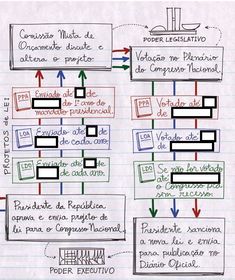 Comissão Mista de
Orçamento discute e
altera o projeto.
PODER LEGISLATIVO
Votação no Plenário
do Congresso Nacional.
PROJETOS DE LEI
PPA
Enviado até
de
do 1º ano do
mandato presidencial.
LOA
Enviado até
de
de cada ano.
LDO
Enviado até
de
de cada ano.
PPA
Votado até
de
LOA
Votado até
de
LDO
Se não for votado
até
o Congresso não
sem recesso.
Presidente da República
aprova e envia projeto de
lei para o Congresso Nacional.
PODER EXECUTIVO
Presidente sanciona
a nova lei e envia
para publicação no
Diário Oficial.